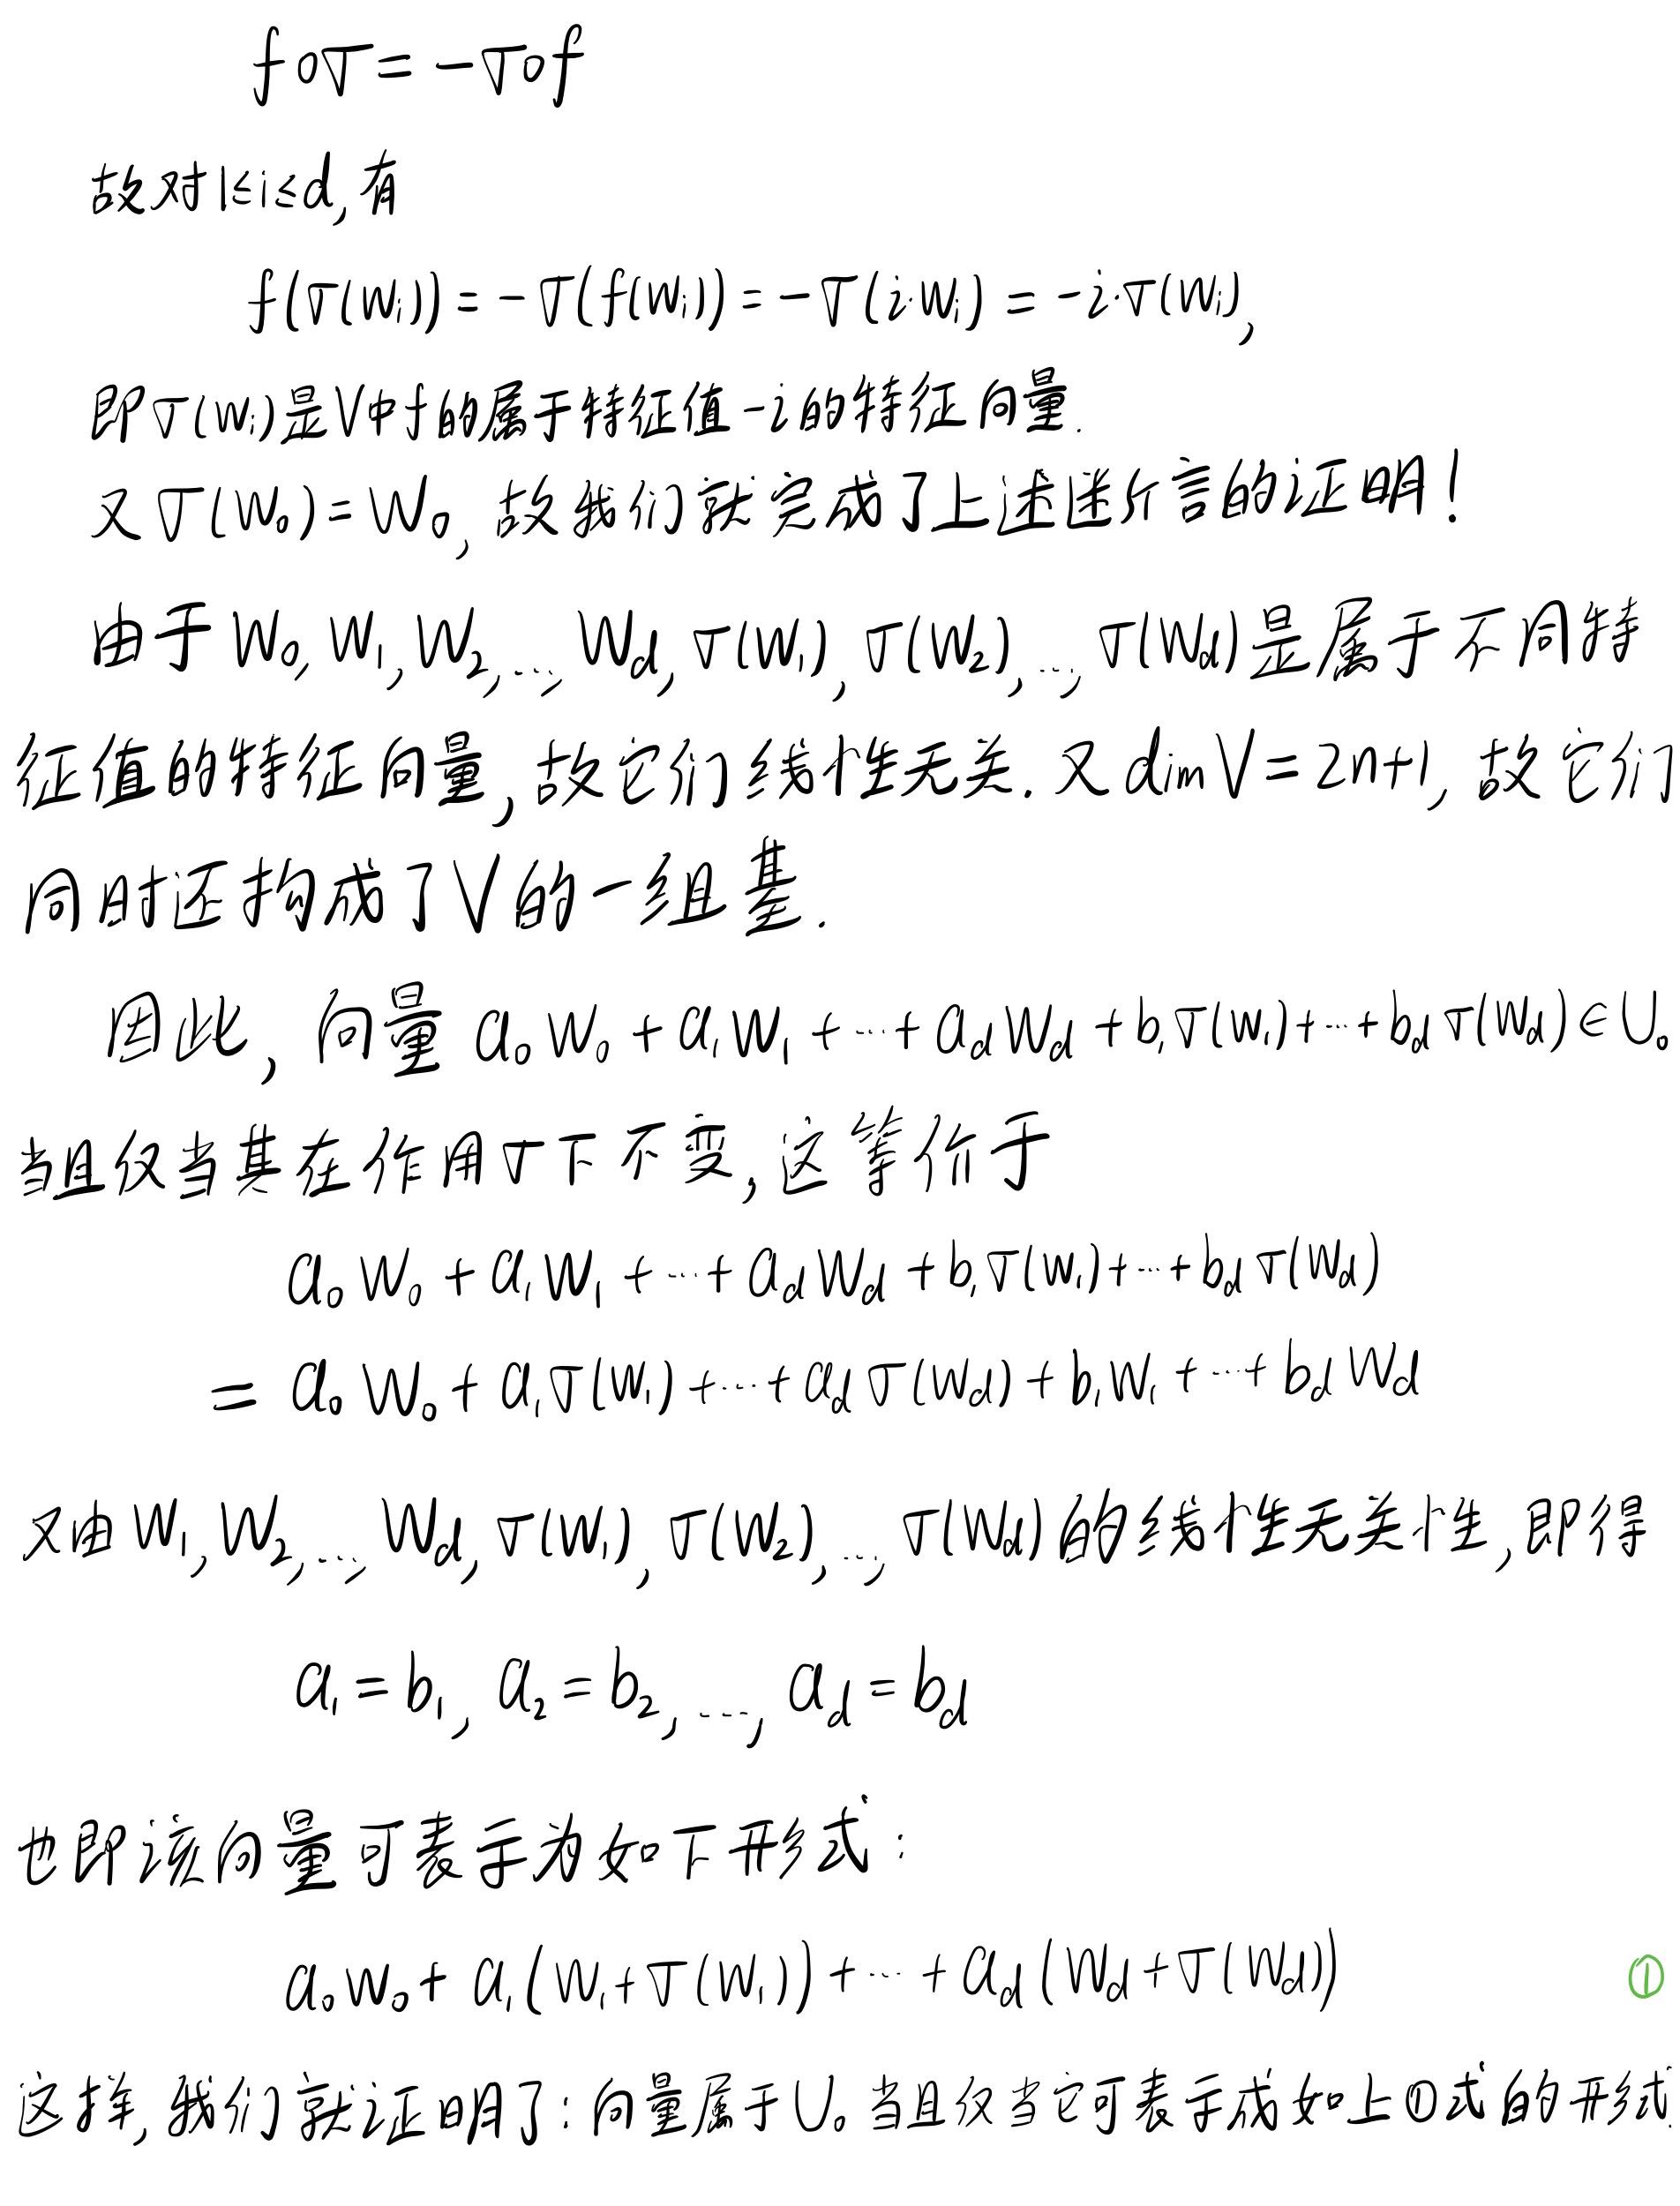 f∘σ = -σ∘f
故对1≤i≤d,有
f(σ(w_i)) = -σ(f(w_i)) = -σ(i·w_i) = -i·σ(w_i),
即σ(w_i)是V中f的属于特征值-i的特征向量.
又σ(w_0)=w_0, 故我们就完成了上述迷你言的证明!
由于 w_0, w_1, w_2, ..., w_d, σ(w_1), σ(w_2), ..., σ(w_d)是属于不同特
征值的特征向量, 故它们线性无关. 又 dim V = 2n+1, 故它们
同时还构成了V的一组基.
因此, 向量 a_0w_0 + a_1w_1 + ... + a_dw_d + b_1σ(w_1) + ... + b_dσ(w_d) ∈ U_0
当且仅当其在作用σ下不变, 这等价于
a_0w_0 + a_1w_1 + ... + a_dw_d + b_1σ(w_1) + ... + b_dσ(w_d)
= a_0w_0 + a_1σ(w_1) + ... + a_dσ(w_d) + b_1w_1 + ... + b_dw_d
又由 w_1, w_2, ..., w_d, σ(w_1), σ(w_2), ..., σ(w_d)的线性无关性, 即得
a_1 = b_1, a_2 = b_2, ..., a_d = b_d
也即该向量可表示为如下形式:
a_0w_0 + a_1(w_1+σ(w_1)) + ... + a_d(w_d+σ(w_d)) ①
这样, 我们就证明了: 向量属于U_0当且仅当它可表示成如上①式的形式.